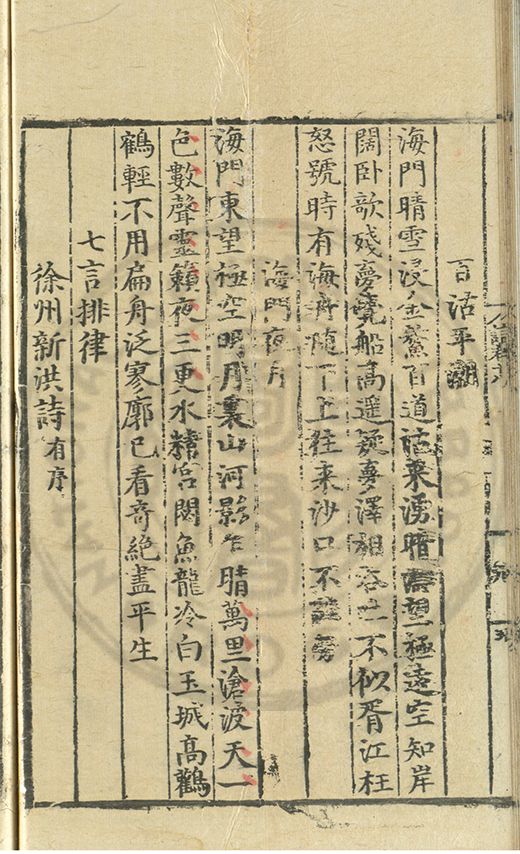 百沽平潮
海門晴雪浸金鰲百道沽来湧暗濤望極遠空知岸
闊卧歌殘夢覺船高遥疑夢澤相吞不似胥江枉
怒號時有海舟随下上往来沙口不
海門夜月
海門東望極空明月裏山河影乍晴萬里滄波天一
色數聲靈籟夜三更水精宮闕魚龍冷白玉城高鸛
鶴輕不用扁舟泛寥廓已看奇絶盡平生
七言排律
徐州新洪詩有序